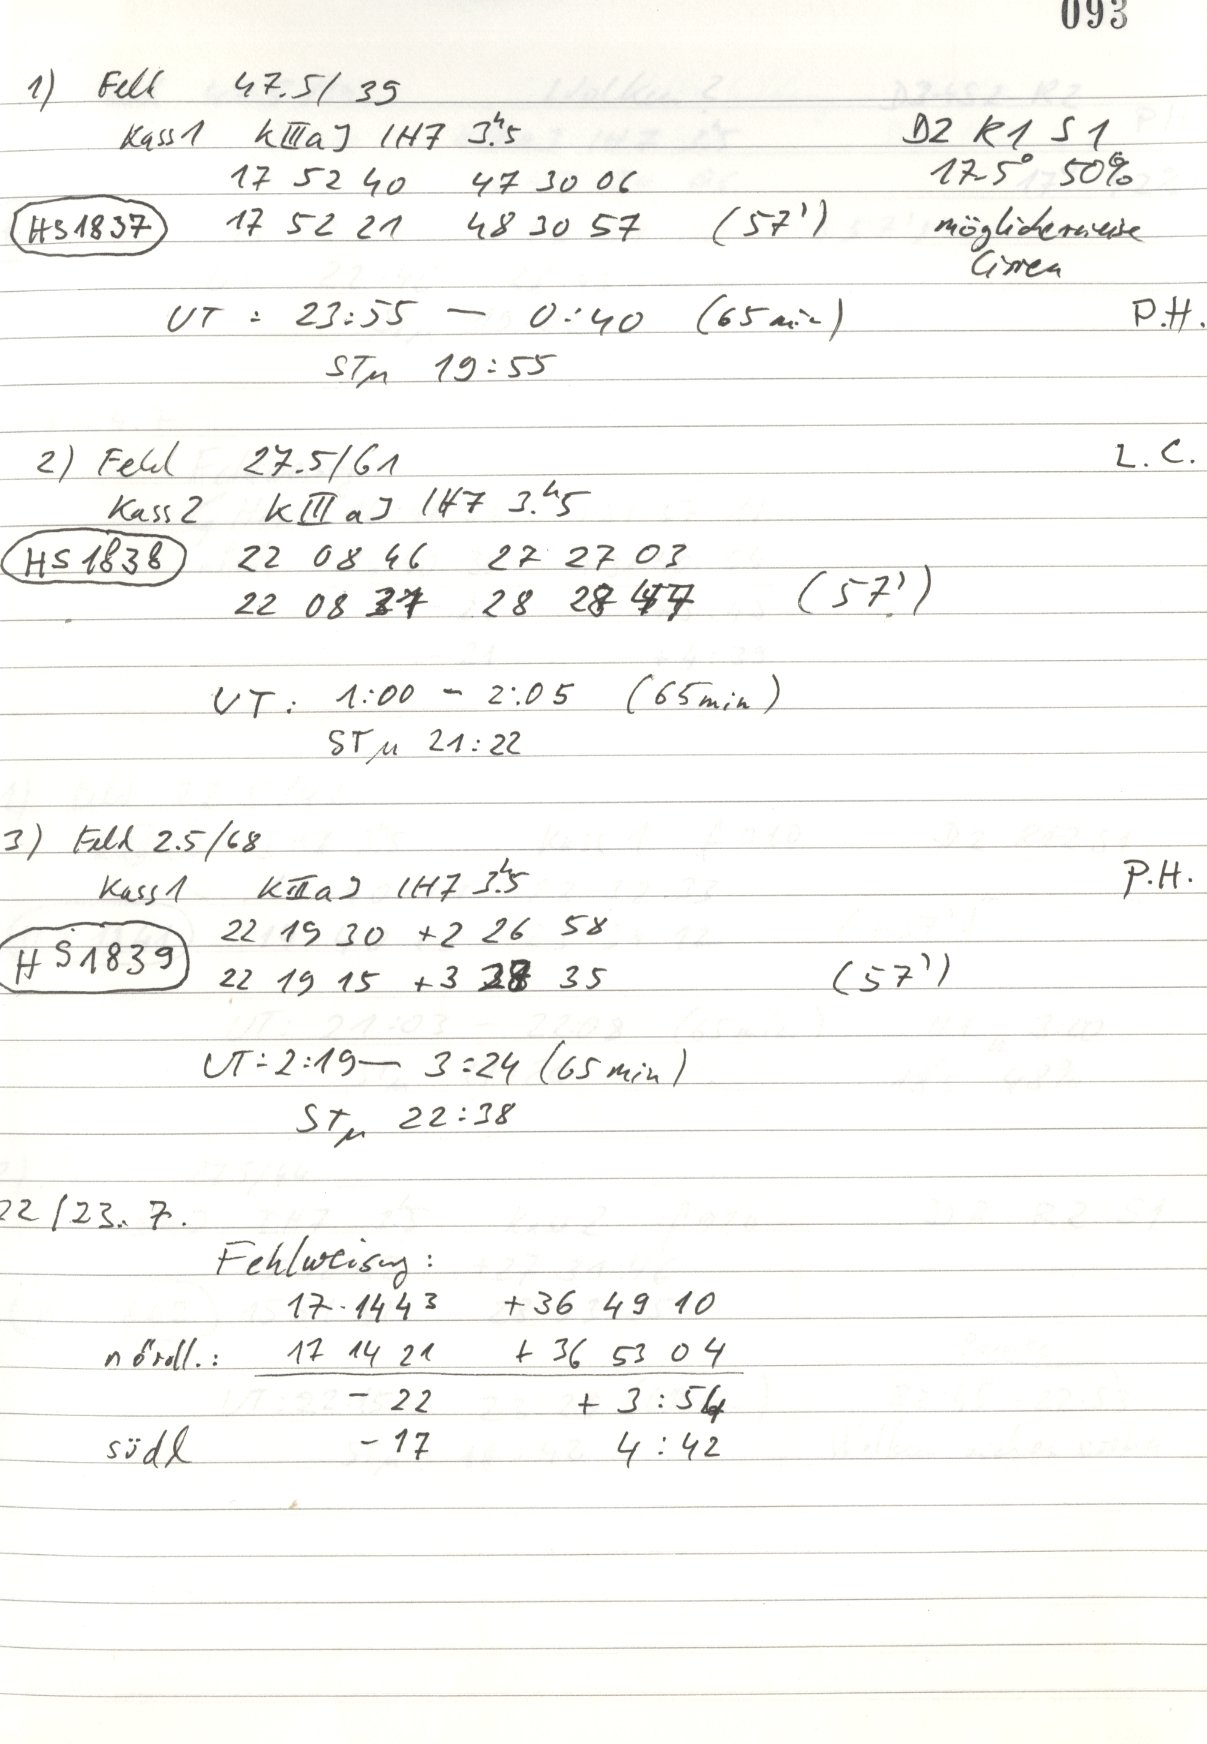 093
1) Feld 47.5/39
Kass1 kIIIaJ IH7 3.ʰ5 D2 R1 S1
17 52 40 47 30 06 17.5° 50%
HS1837 17 52 21 48 30 57 (57') möglicherweise
Cirren
UT: 23:55 — 0:40 (65 min) P.H.
STμ 19:55
2) Feld 27.5/61 L.C.
Kass2 kIIIaJ IH7 3.ʰ5
HS1838 22 08 46 27 27 03
22 08 28 (57')
UT: 1:00 - 2:05 (65min)
STμ 21:22
3) Feld 2.5/68
Kass1 kIIIaJ IH7 3.ʰ5 P.H.
22 19 30 +2 26 58
HS1839 22 19 15 +3 35 (57')
UT: 2:19 — 3:24 (65min)
STμ 22:38
22/23. 7.
Fehlweisung:
17 14 43 +36 49 10
nördl.: 17 14 21 +36 53 04
- 22 + 3:54
südl - 17 4:42